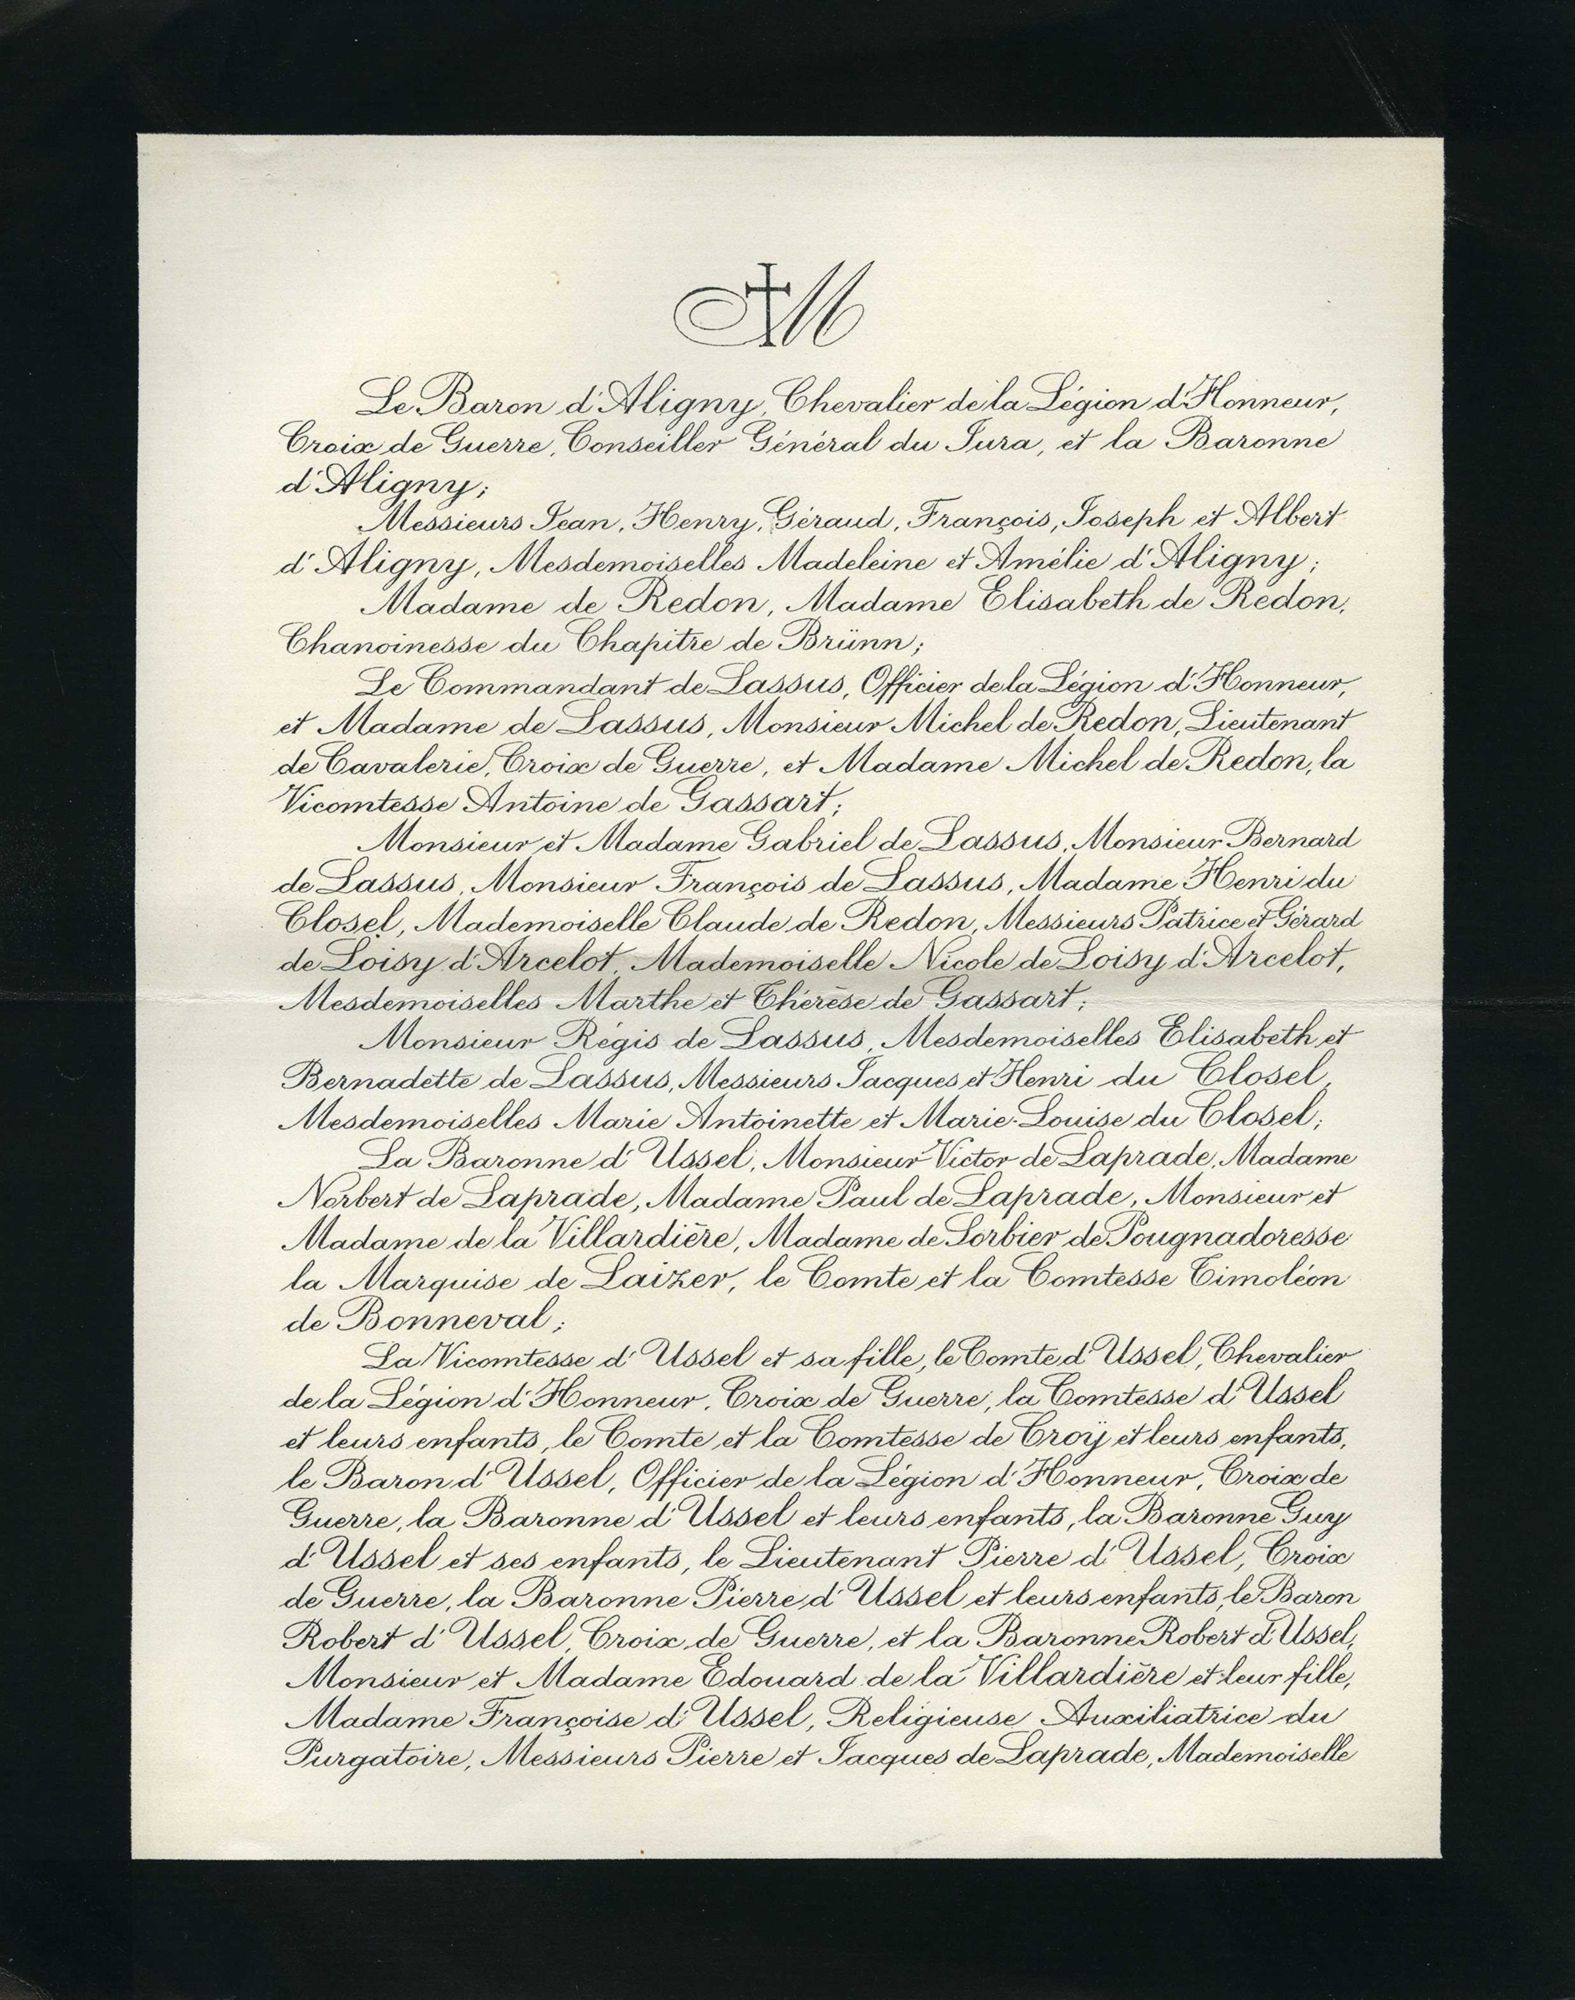 M
Le Baron d'Aligny, Chevalier de la Légion d'Honneur,
Croix de Guerre, Conseiller Général du Jura, et la Baronne
d'Aligny;
Messieurs Jean, Henry, Géraud, François, Joseph et Albert
d'Aligny, Mesdemoiselles Madeleine et Amélie d'Aligny;
Madame de Redon, Madame Elisabeth de Redon,
Chanoinesse du Chapitre de Brünn;
Le Commandant de Lassus, Officier de la Légion d'Honneur,
et Madame de Lassus, Monsieur Michel de Redon, Lieutenant
de Cavalerie, Croix de Guerre, et Madame Michel de Redon, la
Vicomtesse Antoine de Gassart;
Monsieur et Madame Gabriel de Lassus, Monsieur Bernard
de Lassus, Monsieur François de Lassus, Madame Henri du
Closel, Mademoiselle Claude de Redon, Messieurs Patrice et Gérard
de Loisy d'Arcelot, Mademoiselle Nicole de Loisy d'Arcelot,
Mesdemoiselles Marthe et Thérèse de Gassart;
Monsieur Régis de Lassus, Mesdemoiselles Elisabeth et
Bernadette de Lassus, Messieurs Jacques et Henri du Closel,
Mesdemoiselles Marie Antoinette et Marie-Louise du Closel;
La Baronne d'Ussel, Monsieur Victor de Laprade, Madame
Norbert de Laprade, Madame Paul de Laprade, Monsieur et
Madame de la Villardière, Madame de Sorbier de Pougnadoresse
la Marquise de Laizer, le Comte et la Comtesse Timoléon
de Bonneval;
La Vicomtesse d'Ussel et sa fille, le Comte d'Ussel, Chevalier
de la Légion d'Honneur, Croix de Guerre, la Comtesse d'Ussel
et leurs enfants, le Comte et la Comtesse de Croÿ et leurs enfants,
le Baron d'Ussel, Officier de la Légion d'Honneur, Croix de
Guerre, la Baronne d'Ussel et leurs enfants, la Baronne Guy
d'Ussel et ses enfants, le Lieutenant Pierre d'Ussel, Croix
de Guerre, la Baronne Pierre d'Ussel et leurs enfants, le Baron
Robert d'Ussel, Croix de Guerre, et la Baronne Robert d'Ussel,
Monsieur et Madame Edouard de la Villardière et leur fille,
Madame Françoise d'Ussel, Religieuse Auxiliatrice du
Purgatoire, Messieurs Pierre et Jacques de Laprade, Mademoiselle